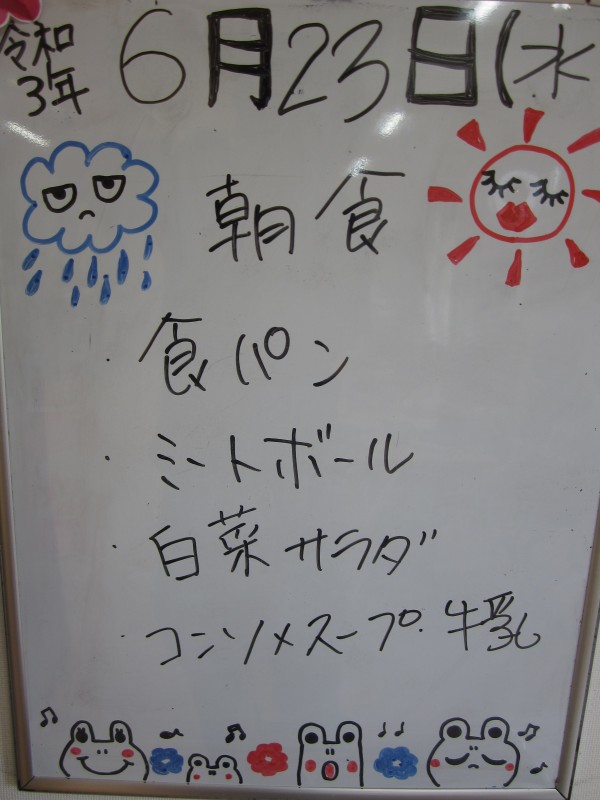 令和
3年
6月23日(水
朝食
・食パン
・ミートボール
・白菜サラダ
・コンソメスープ・牛乳